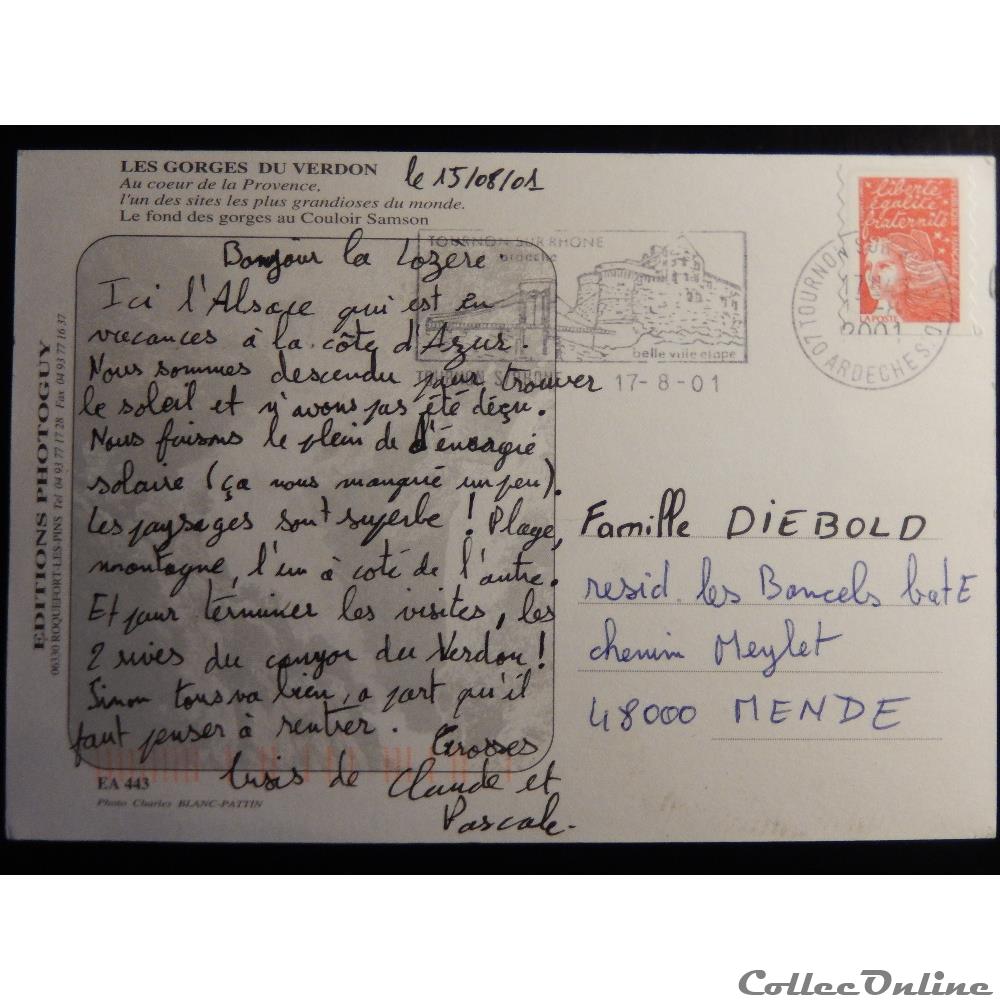 LES GORGES DU VERDON
Au coeur de la Provence,
l'un des sites les plus grandioses du monde.
Le fond des gorges au Couloir Samson
le 15/08/01
Bonjour la Lozère.
Ici l'Alsace qui est en
vacances à la côte d'Azur.
Nous sommes descendu pour trouver
le soleil et n'avons pas été déçu.
Nous faisons le plein de d'énergie
solaire (ça nous manquié un peu).
Les paysages sont superbe ! Plage,
montagne, l'un à coté de l'autre.
Et pour terminer les visites, les
2 rives du canyon du Verdon !
Sinon tous va bien, a part qu'il
faut penser à rentrer. Grosses
bisis de Claude et
Pascale.
EA 443
Photo Charles BLANC-PATTIN
ÉDITIONS PHOTOGUY
06330 ROQUEFORT-LES-PINS Tél 04 93 77 17 28 Fax 04 93 77 16 37
TOURNON SUR RHONE
ardeche
belle ville etape
TOURNON S/RHONE 17-8-01
07 TOURNON SUR
2001
ARDECHE
liberté
égalité
fraternité
LA POSTE
Famille DIEBOLD
resid. les Bancels bat E
chemin Meylet
48000 MENDE
CollecOnline